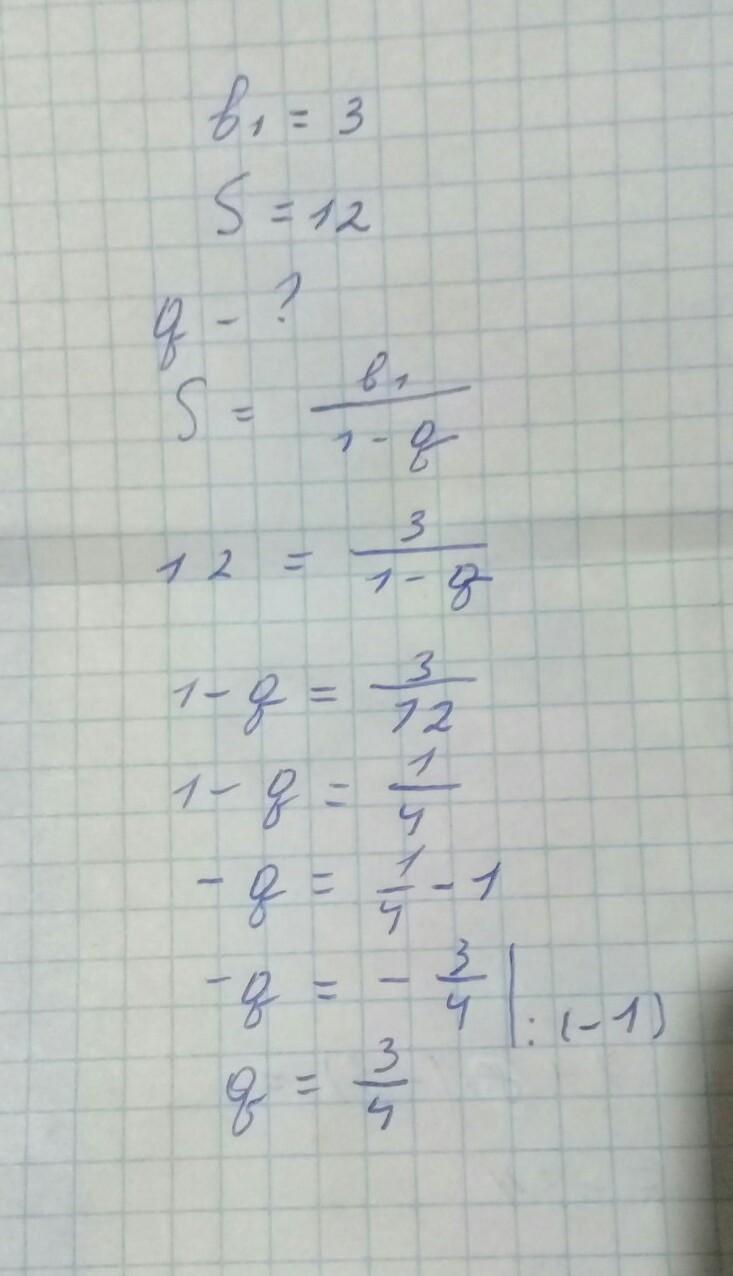 b₁ = 3
S = 12
q - ?
S = b₁/(1 - q)
12 = 3/(1 - q)
1 - q = 3/12
1 - q = 1/4
- q = 1/4 - 1
- q = - 3/4 | : (- 1)
q = 3/4